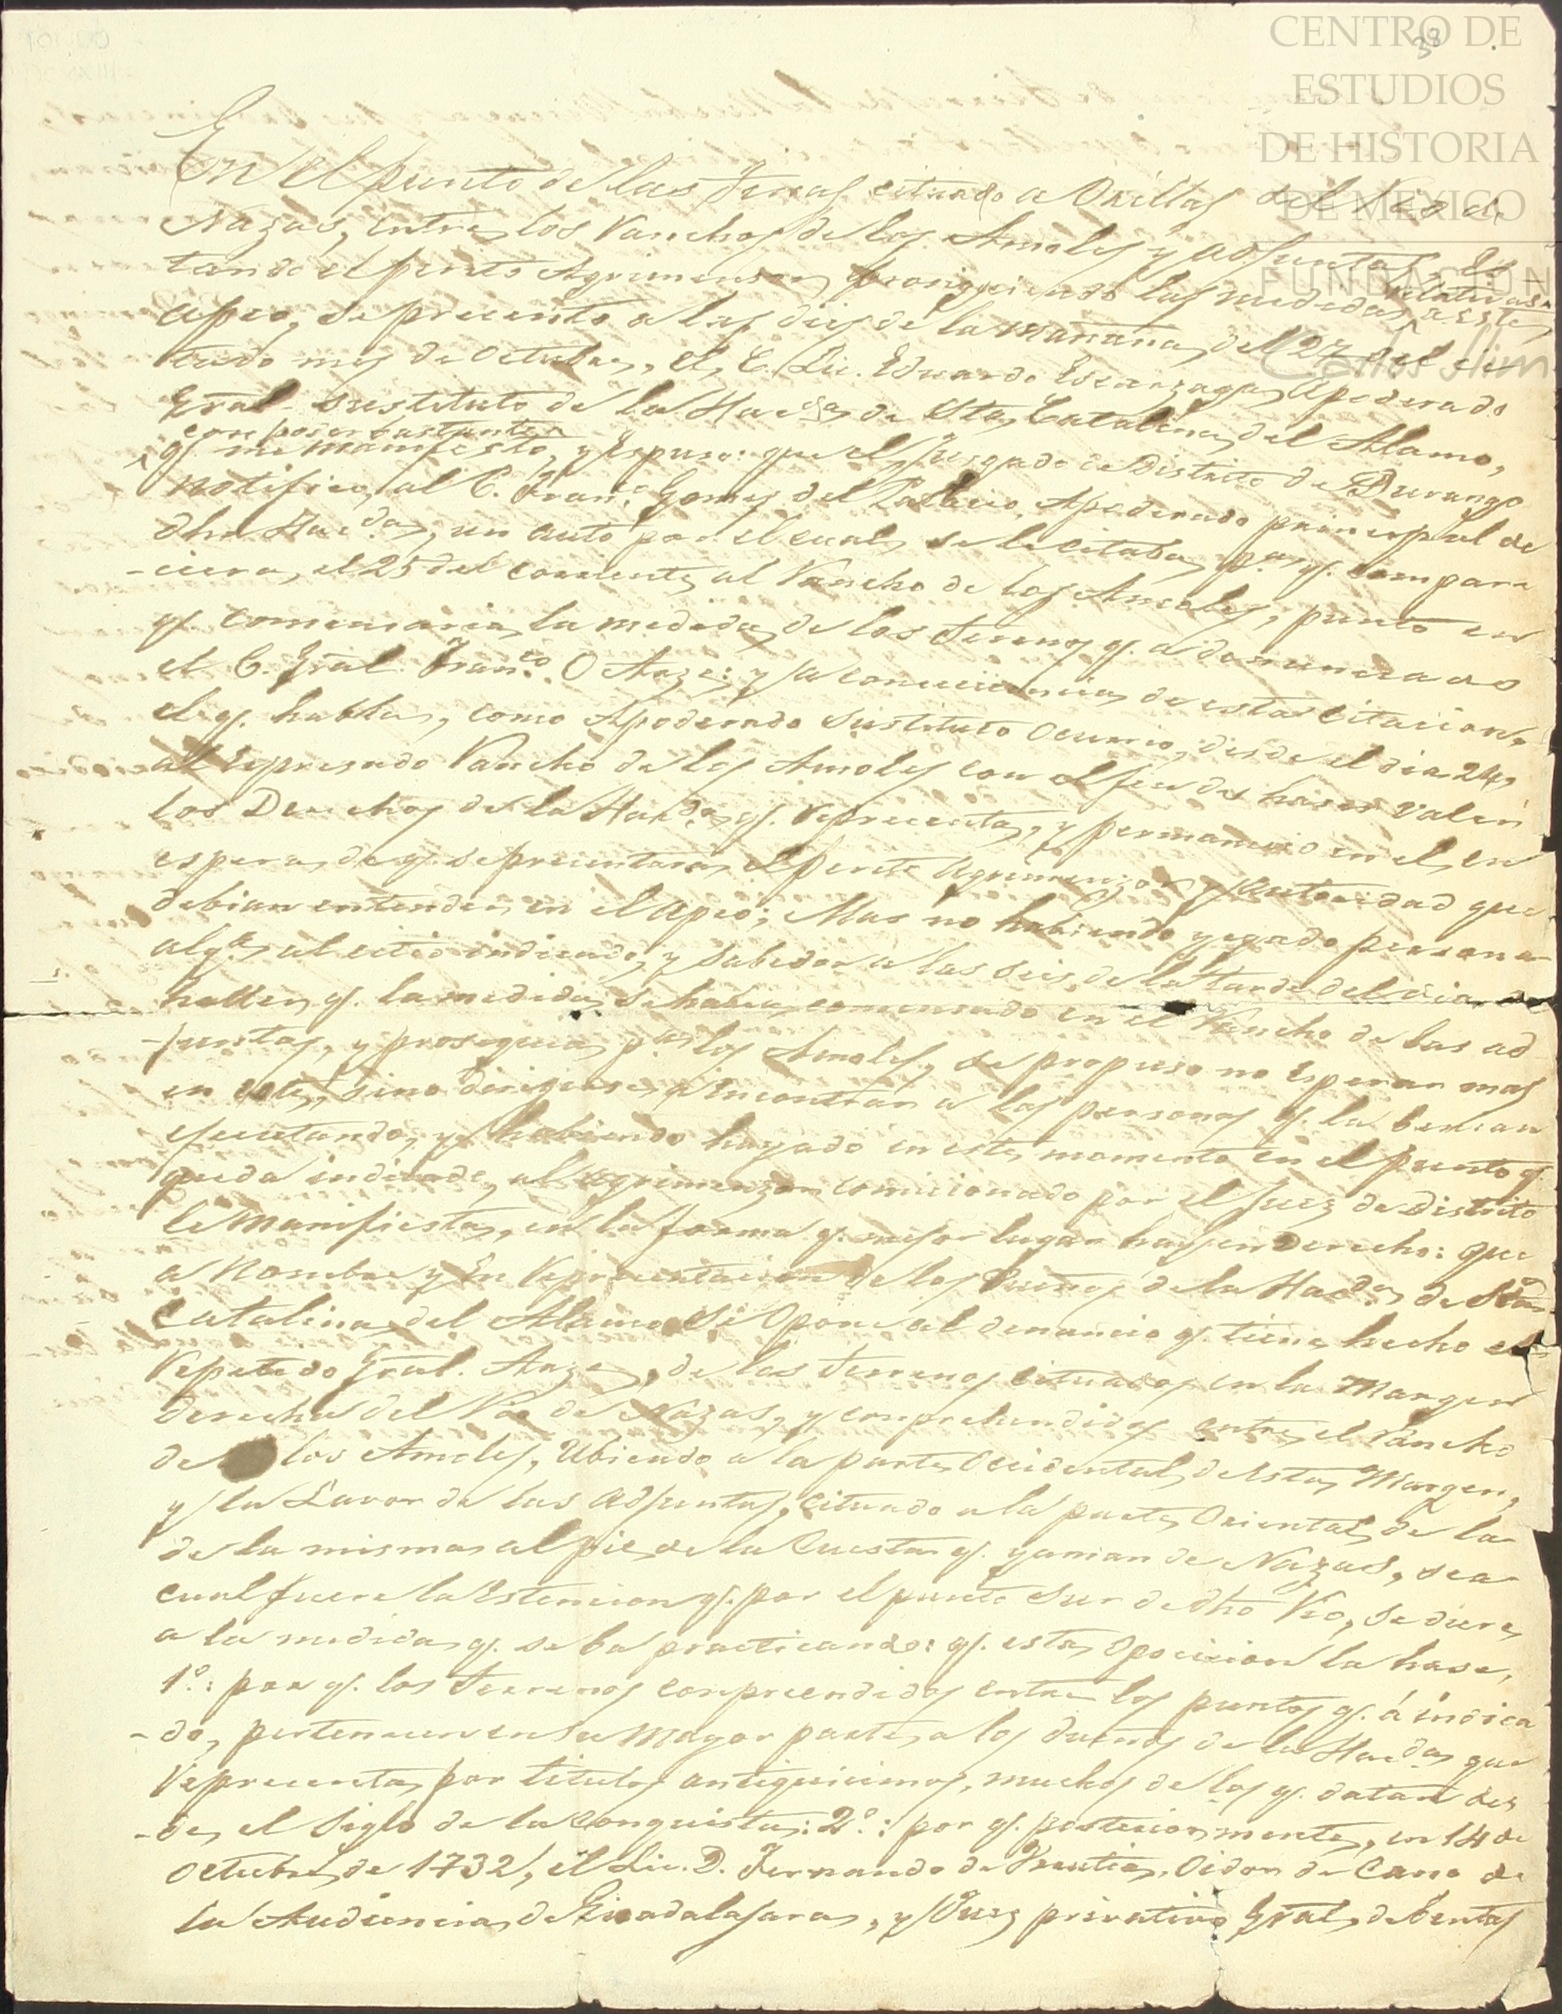 CENTRO DE
ESTUDIOS
DE HISTORIA
DE MEXICO
FUNDACIÓN
Carlos Slim
38
En el punto de las situado a Orillas del Rio de
Nazas, entre los Ranchos de los Amoles y adjuntas Es
tando el perito Agrimensor prosiguiendo las medidas relativas a este
apeo, se precento a las dies de la Mañana, del 27 del ci
tado mes de Octubre, el C. Lic. Eduardo Escarzaga, Apoderado
Gral. sustituto de la Hacda. de Sta. Catalina, del Alamo,
con poder bastante
q. me manifesto, y Espuso: que el Jusgado de Distrito de Durango
notifico, al C. Franco. Gomes del Palacio, Apoderado prinsipal de
dha Hacda., un auto por el cual, se le citaba, pa. q. compare
-ciera, el 25 del corriente, al Rancho de los Amoles, punto en
q. comensaria, la medida, de los Terrenos q. a denunciado
el C. Gral. Franco. O Arze: y a consecuencia, de esta citacion,
el q. habla, como Apoderado Sustituto Ocurrio, desde el dia 24,
al Espresado Rancho de los Amoles con el fin de haser valer
los Derechos de la Hacda. q. Reprecenta, y permanecio en el, en
espera, de q. se precentara, el perito Agrimenzor y Autoridad que
debian entender, en el apeo; Mas no habiendo yegado persona
alga. al citio indicado, y sabedor a las seis, de la tarde del dia de
q. la medida, se habia comensado en el Rancho de las ad
-juntas, y proseguia, pa. los Amoles, se propuso no Esperar mas
en este, sino dirigirse, a Encontrar a las personas q. la benian
ejecutando, y habiendo hayado en este momento en el punto q.
queda indicado, al agrimenzor comicionado por el Juez de Distrito
le Manifiesta, en la forma q. mejor lugar haya en Derecho: que
a Nombre y En Reprecentacion de los Dueños de la Hacda. de Sta.
Catalina, del Alamo Se Opone al denuncio q. tiene hecho el
Repetido Gral. Arze, de los Terrenos cituados en la Margen
derecha del Rio de Nazas, y conprehendidos entre el Rancho
de los Amoles, Ubicado a la parte Occidental, de esta, Margen,
y la Lavor de las Adjuntas, cituado a la parte Oriental, de la
de la misma, al pie de la Cuesta q. yaman de Nazas, sea
cual fuere la Estencion q. por el punto Sur de dho Rio, se diere
a la medida, q. se ba practicando: q. esta, Oposicion la hase,
1o.: por q. los Terrenos conprendidos entre los puntos q. á indica
-do, pertenecen en su Mayor parte, a los dueños de la Hacda. que
Reprecenta, por titulos antiquicimos, muchos de los q. datan des
-de, el Siglo de la conquista: 2o.: por q. posteriormente, en 14 de
Octubre de 1732, el Lic. D. Fernando de Urrutia, Oidor de Cano de
la Audiencia, de Guadalajara, y Juez privativo Gral, de bentas